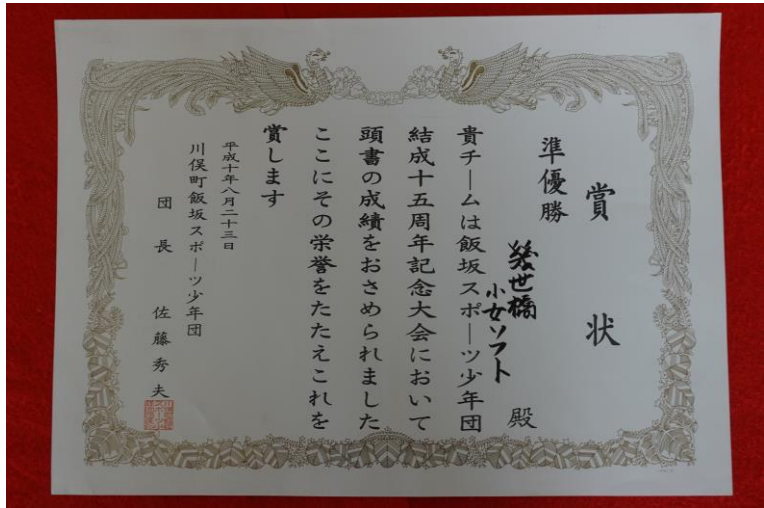 賞状
準優勝
幾世橋
小女ソフト 殿
貴チームは飯坂スポーツ少年団
結成十五周年記念大会において
頭書の成績をおさめられました
ここにその栄誉をたたえこれを
賞します
平成十年八月二十三日
川俣町飯坂スポーツ少年団
団長 佐藤秀夫